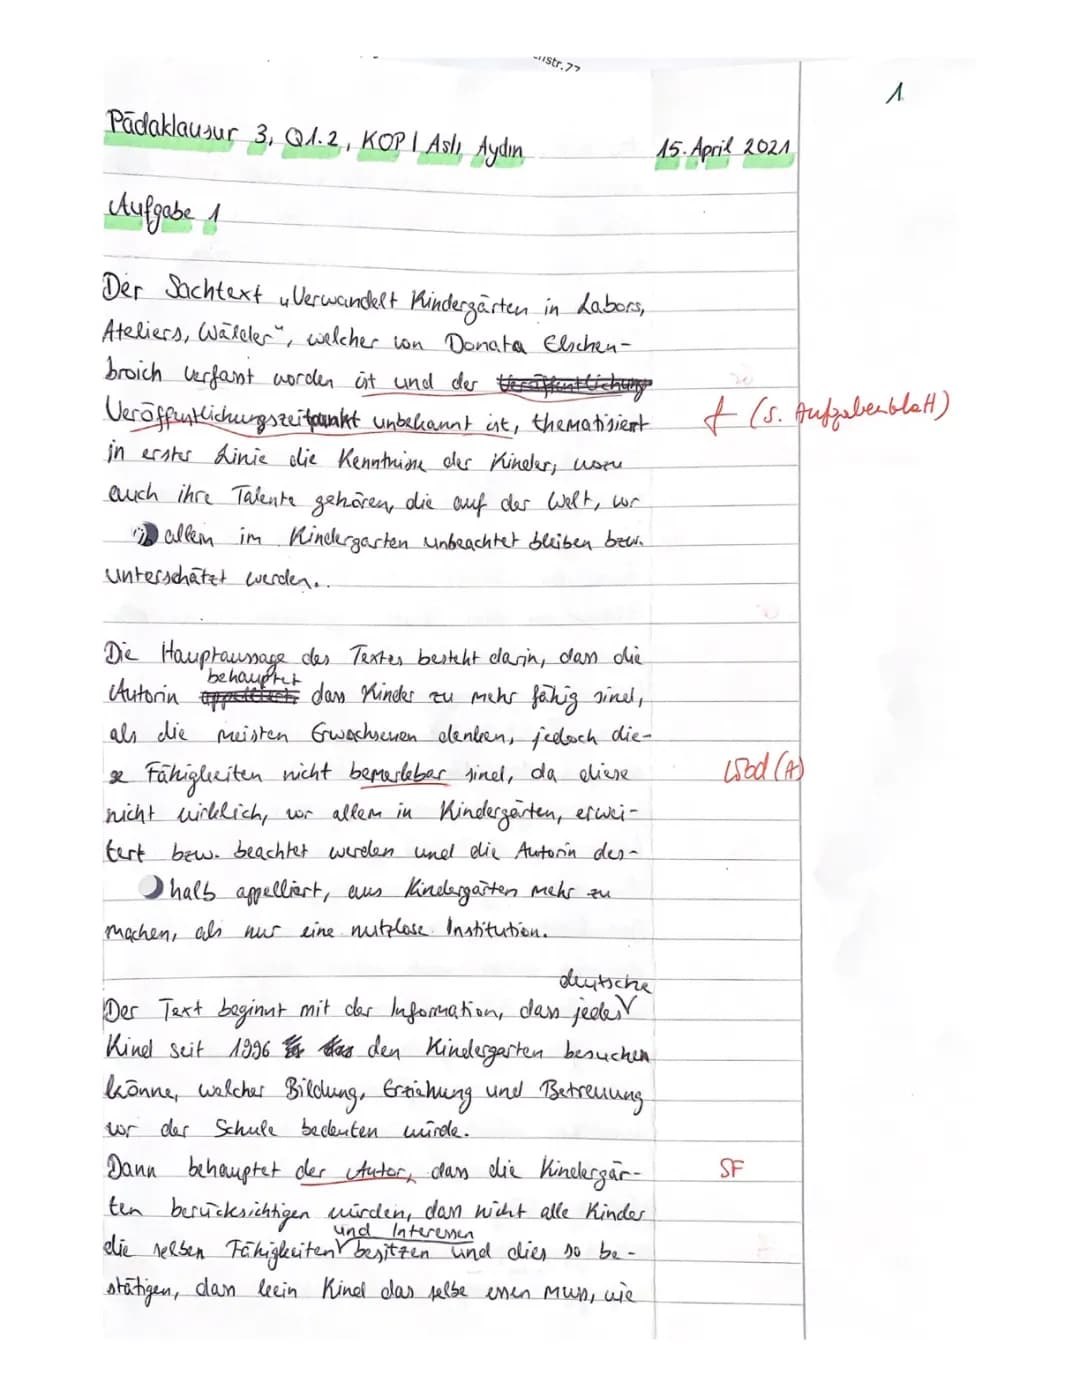 nstr. 77
1
Pädaklausur 3, Q1.2, KOP | Aslı Aydın 15. April 2021
Aufgabe 1
Der Sachtext „Verwandelt Kindergärten in Labors,
Ateliers, Wälder", welcher von Donata Elschen-
broich verfasst worden ist und der Veröffentlichung
Veröffentlichungszeitpunkt unbekannt ist, thematisiert f (s. Aufgabenblatt)
in erster Linie die Kenntnisse der Kinder, wozu
auch ihre Talente gehören, die auf der Welt, vor
allem im Kindergarten unbeachtet bleiben bzw.
unterschätzt werden.
Die Hauptaussage des Textes besteht darin, dass die
behauptet
Autorin appelliert, dass Kinder zu mehr fähig sind,
als die meisten Erwachsenen denken, jedoch die-
se Fähigkeiten nicht bemerkbar sind, da diese (A)
nicht wirklich, vor allem in Kindergärten, erwei-
tert bzw. beachtet werden und die Autorin des-
halb appelliert, aus Kindergärten mehr zu
machen, als nur eine nutzlose Institution.
deutsche
Der Text beginnt mit der Information, dass jedes
Kind seit 1996 den Kindergarten besuchen
könne, welcher Bildung, Erziehung und Betreuung
vor der Schule bedeuten würde.
Dann behauptet der Autor, dass die Kindergär- SF
ten berücksichtigen würden, dass nicht alle Kinder
und Interessen
die selben Fähigkeiten besitzen und dies so be-
stätigen, dass kein Kind das selbe essen muss, wie